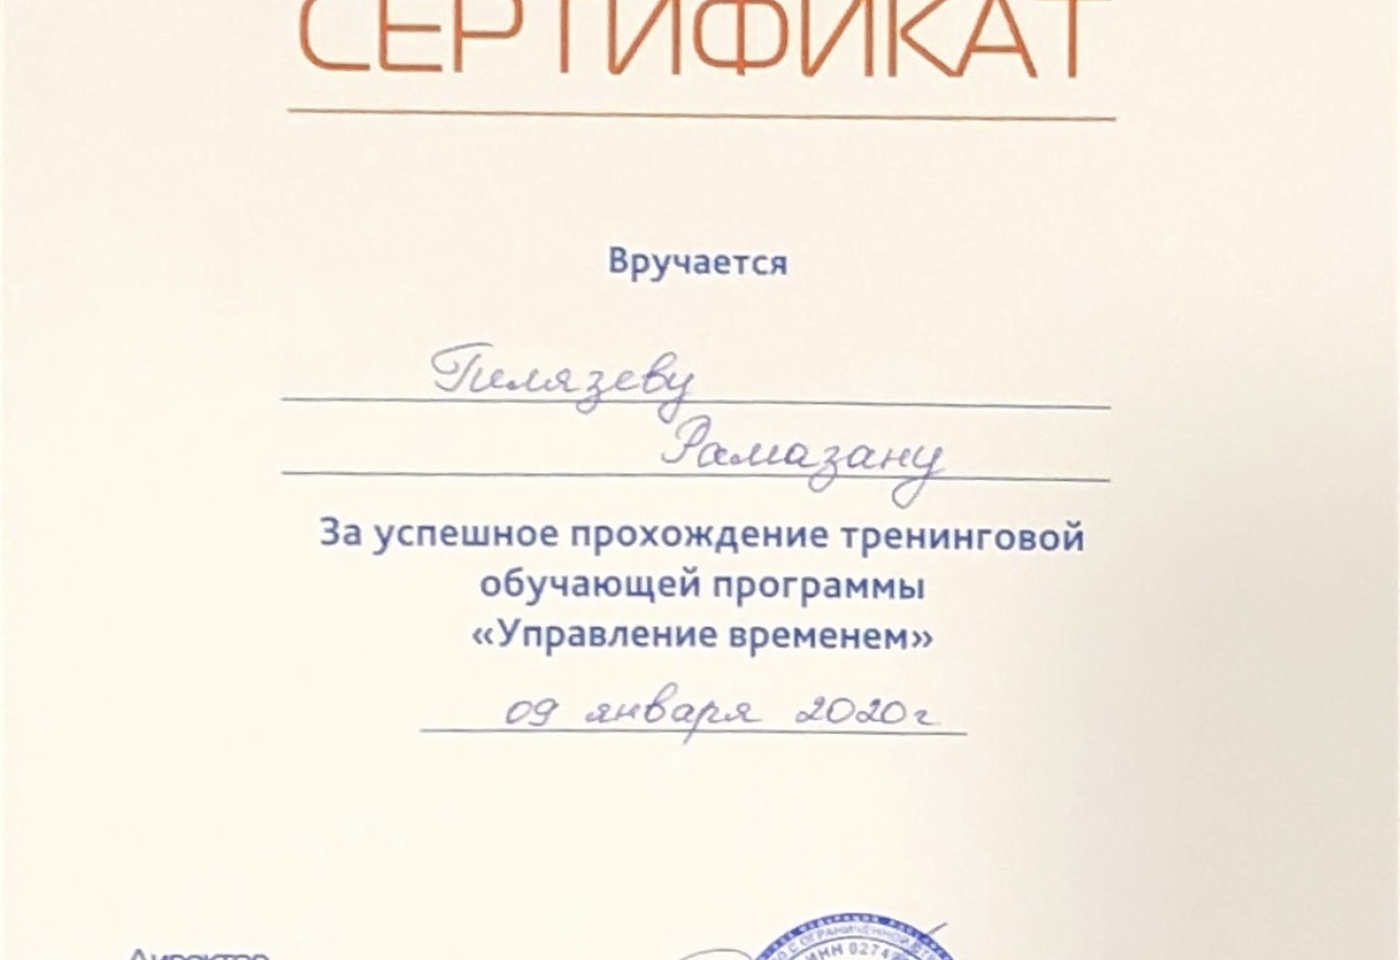 СЕРТИФИКАТ
Вручается
Гилязеву
Рамазану
За успешное прохождение тренинговой
обучающей программы
«Управление временем»
09 января 2020г
Директор
С ОГРАНИЧЕННОЙ
ИНН 0274